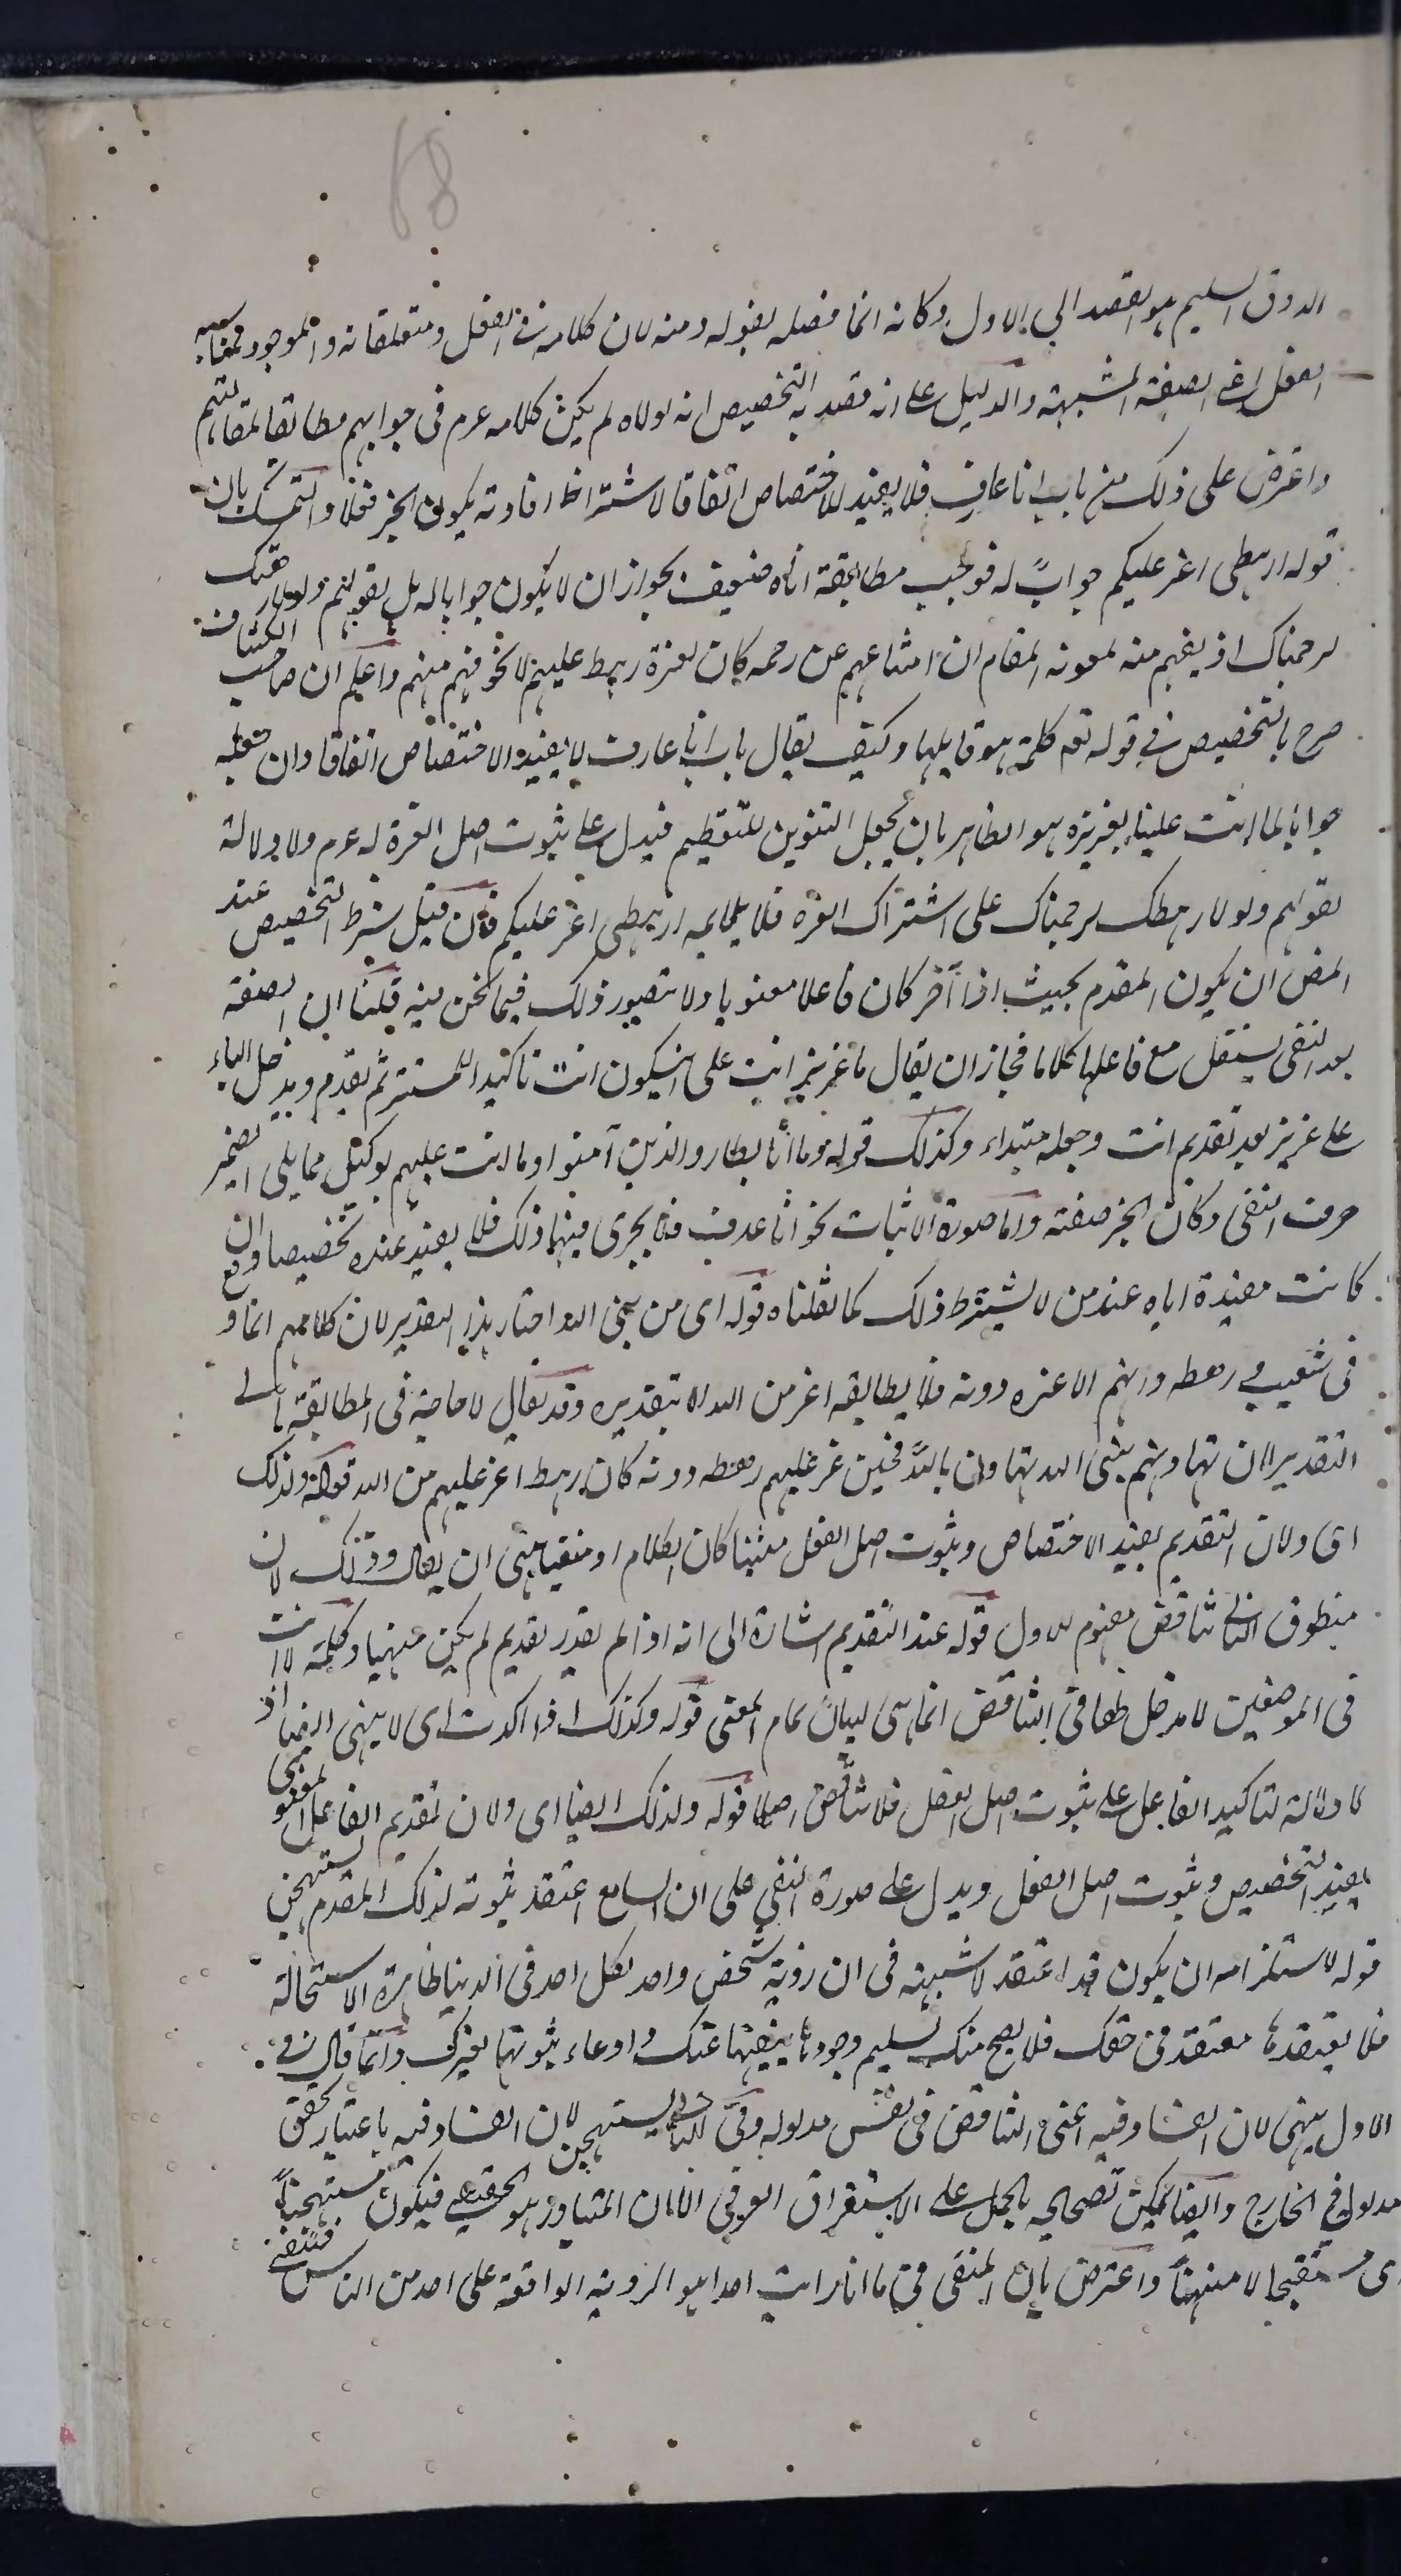 68
الذوق السليم هو القصد الى الاول وكانه انما فصله بقوله ومنه لان كلامه فى الفعل ومتعلقاته والموجود فيما
الفعل اعنى الصفة المشبهة والدليل على انه قصد به التخصيص انه لولاه لم يكن كلامه عرم فى جوابهم مطابقا لمقالتهم
واعترض على ذلك من باب انا عارف فلا يفيد الاختصاص اتفاقا لاشتراط افادته بكون الخبر فعلا والتمسك بان
قوله ارهطى اعز عليكم جوابً له فوجب مطابقة اياه ضعيف بجواز ان لا يكون جوابا له بل لقولهم ولولا رهطك
لرجمناك اذ يفهم منه لمعونة المقام ان امتناعهم عن رجمه كان لعزة رهط عليهم لا لخوفهم منهم واعلم ان صاحب الكشاف
صرح بالتخصيص فى قوله تع كلمة هو قايلها وكيف يقال باب انا عارف لا يفيد الاختصاص اتفاقا وان جعله
جوابا لما انت علينا بعزيز هو الظاهر بان يجعل التنوين للتعظيم فيدل على ثبوت اصل العزة له عرم ولا دلالة
لقولهم ولولا رهطك لرجمناك على اشتراك العزه فلا يلايمه ارهطى اعز عليكم فان قيل شرط التخصيص عند
المص ان يكون المقدم بحيث اذا أخر كان فاعلا معنويا ولا يتصور ذلك فيما نحن فيه قلنا ان الصفة
بعد النفى يستقل مع فاعلها كلاما فجاز ان يقال ما عزيز انت على ان يكون انت تاكيدا للمستتر ثم يقدم ويدخل الباء
على عزيز بعد تقديم انت وجعله مبتداء وكذلك قوله وما انا بطارد الذين آمنوا وما انت عليهم بوكيل مما يلى الضمير
حرف النفى وكان الخبر صفته واما صورة الاثبات نحو انا عارف فلا يجرى فيها ذلك فلا يفيد عنده تخصيصا وان
كانت مفيدة اياه عند من لا يشترط ذلك كما نقلناه قوله اى من نبى الله اختار هذا التقدير لان كلامهم انما وقع
فى شعيب ع رهطه وانهم الاعزه دونه فلا يطابقه اعز من الله الا بتقديره وقد يقال لا حاجة فى المطابقة الى
التقدير لان تهاونهم بنبى الله تهاون بالله فحين عز عليهم رهطه دونه كان رهط اعز عليهم من الله قوله ولذلك
اى ولان التقديم يفيد الاختصاص وثبوت اصل الفعل مثبتا كان الكلام او منفيا ينهى ان يقال وذلك لان
منطوق الثانى تناقض مفهوم الاول قوله عند التقديم اشارة الى انه اذا لم يقدر تقديم لم يكن منهيا وكلمة لا انت
فى الموضعين لا مدخل لها فى التناقض انما هى لبيان تمام المعنى قوله وكذلك اذا اكدت اى لا ينهى ايضا اذ
لا دلالة لتاكيد الفاعل على ثبوت اصل الفعل فلا تناقض اصلا قوله ولذلك ايضا اى ولان تقديم الفاعل المعنوى
يفيد التخصيص وثبوت اصل الفعل ويدل على صورة النفى على ان السامع اعتقد ثبوته لذلك المقدم يستهجن
قوله لاستلزامه ان يكون قد اعتقد لا شبهة فى ان رؤية شخص واحد لكل احد فى الدنيا ظاهرة الاستحالة
فلا يعتقدها معتقد فى حقك فلا يصح منك تسليم وجودها بنفيها عنك وادعاء ثبوتها لغيرك وانما قال فى
الاول ينهى لان الفساد فيه اعنى التناقض فى نفس مدلوله وفى الثانى يستهجن لان الفساد فيه باعتبار تحقق
مدلوله فى الخارج وايضا يمكن تصحيحه بالحمل على الاستغراق العرفى الا ان المتبادر هو الحقيقى فيكون مستهجنا
اى مستقبحا لا منهيا واعترض بان المنفى فى ما انا رايت احدا هو الرؤية الواقعة على احد من الناس فتنتفى